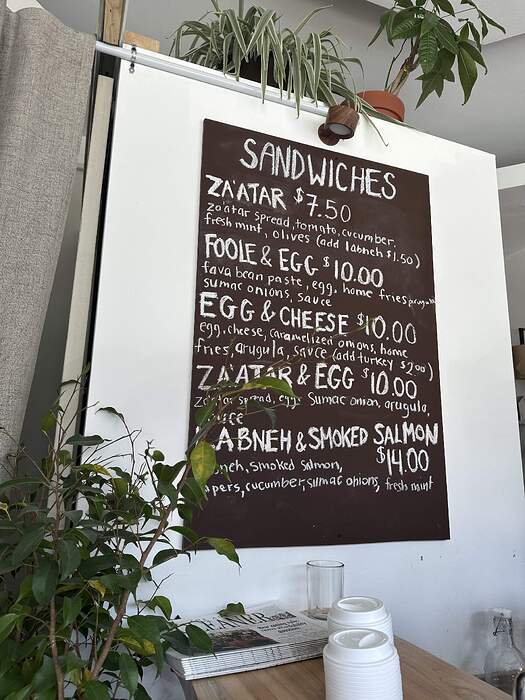 SANDWICHES
ZA'ATAR $7.50
za'atar spread, tomato, cucumber,
fresh mint, olives (add labneh $1.50)
FOOLE & EGG $10.00
fava bean paste, egg, home fries, arugula
sumac onions, sauce
EGG & CHEESE $10.00
egg, cheese, caramelized onions, home
fries, arugula, sauce (add turkey $2.00)
ZA'ATAR & EGG $10.00
za'atar spread, egg, sumac onion, arugula,
LABNEH & SMOKED SALMON
$14.00
smoked salmon,
cucumber, sumac onions, fresh mint